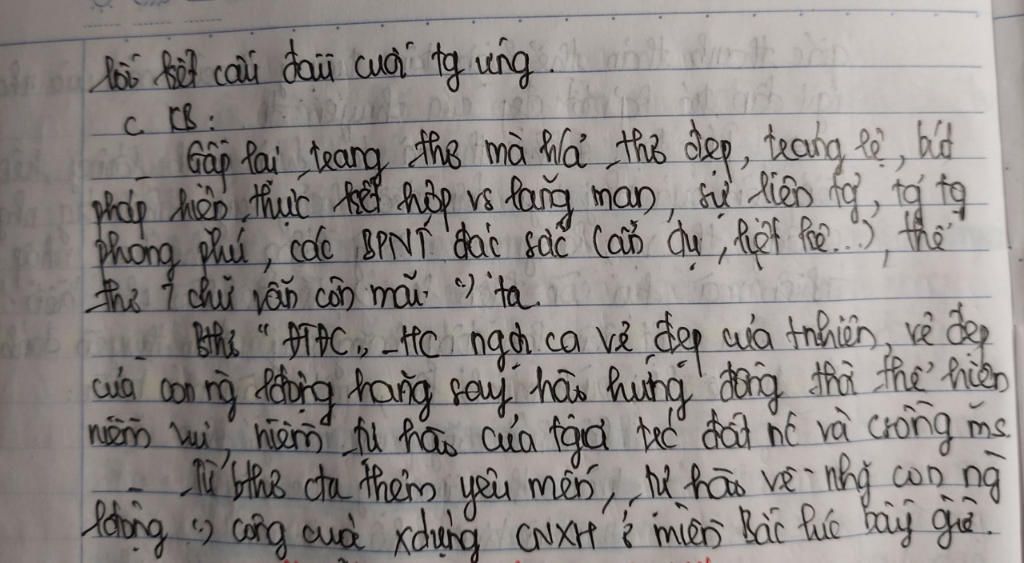 lối kết cấu đầu cuối tg ứng.
C. KB:
_ Gấp lại trang thơ mà h/ả thơ đẹp, tráng lệ, bút
pháp hiện thực kết hợp vs lãng mạn, sự liên tg, tg tg
phong phú, các BPNT đặc sắc (ẩn dụ, liệt kê...), thể
thơ 7 chữ vẫn còn mãi ta.
_ Bthơ "ĐTĐC" - HC ngợi ca vẻ đẹp của tnhiên, vẻ đẹp
của con ng lđộng hăng say, hào hứng đồng thời thể hiện
niềm vui, niềm tự hào của tgiả trc đất nc và csống ms.
_ Từ bthơ cta thêm yêu mến, tự hào về nhg con ng
lđộng công cuộc xdựng CNXH ở miền Bắc lúc bấy giờ.